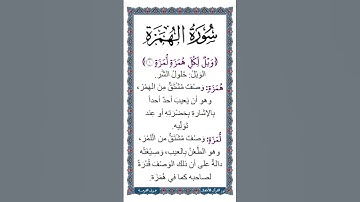 سُورَةُ الهُمَزَةِ
﴿وَيْلٌ لِّكُلِّ هُمَزَةٍ لُّمَزَةٍ ١﴾
الوَيْلُ: حُلُولُ الشَّرِّ.
هُمَزَةٍ: وَصْفٌ مُشْتَقٌّ مِنَ الهَمْزِ،
وهو أَن يَعِيبَ أحدٌ أحداً
بالإشارةِ بِحَضْرَتِهِ أو عند
تَوَلِّيهِ.
لُّمَزَةٍ: وَصْفٌ مُشْتَقٌّ مِنَ اللَّمْزِ،
وهو الطَّعْنُ بِالعيبِ، وَصِيغَتُهُ
دالةٌ على أن ذلك الوَصْفَ كَثْرَةٌ
لصاحبه كما في هُمَزَةٍ.